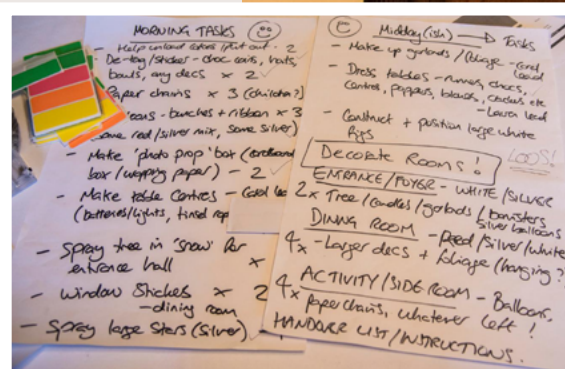 MORNING TASKS
- Help unload cakes / put out - 2
- De-tag/sticker - choc coins, hats,
bowls, any decs x 2
Paper chains x 3
- bunches + ribbon x 3
some red/silver mix, some silver)
- Make 'photo prop' box (cardboard
box / wrapping paper) - 2
- Make table Centres -
(batteries/lights, tinsel
- Spray tree in 'snow' for
entrance hall x
- Window Stickers x 2
- dining room
- Spray large stars (silver)
Midday (ish) → Tasks
- Make up garlands / foliage -
lead
- Dress tables - runners, chocs,
centres, poppers, etc
- lead
- Construct + position large white
Decorate Rooms!
LOOS!
ENTRANCE/FOYER - WHITE/SILVER
2x Tree/candles/garlands/banisters
Silver balloons
DINING ROOM - Red/Silver/White
4x - Larger decs + foliage (hanging?)
4x ACTIVITY/SIDE ROOM - Balloons,
paperchains, whatever left!
HANDOVER LIST/INSTRUCTIONS.